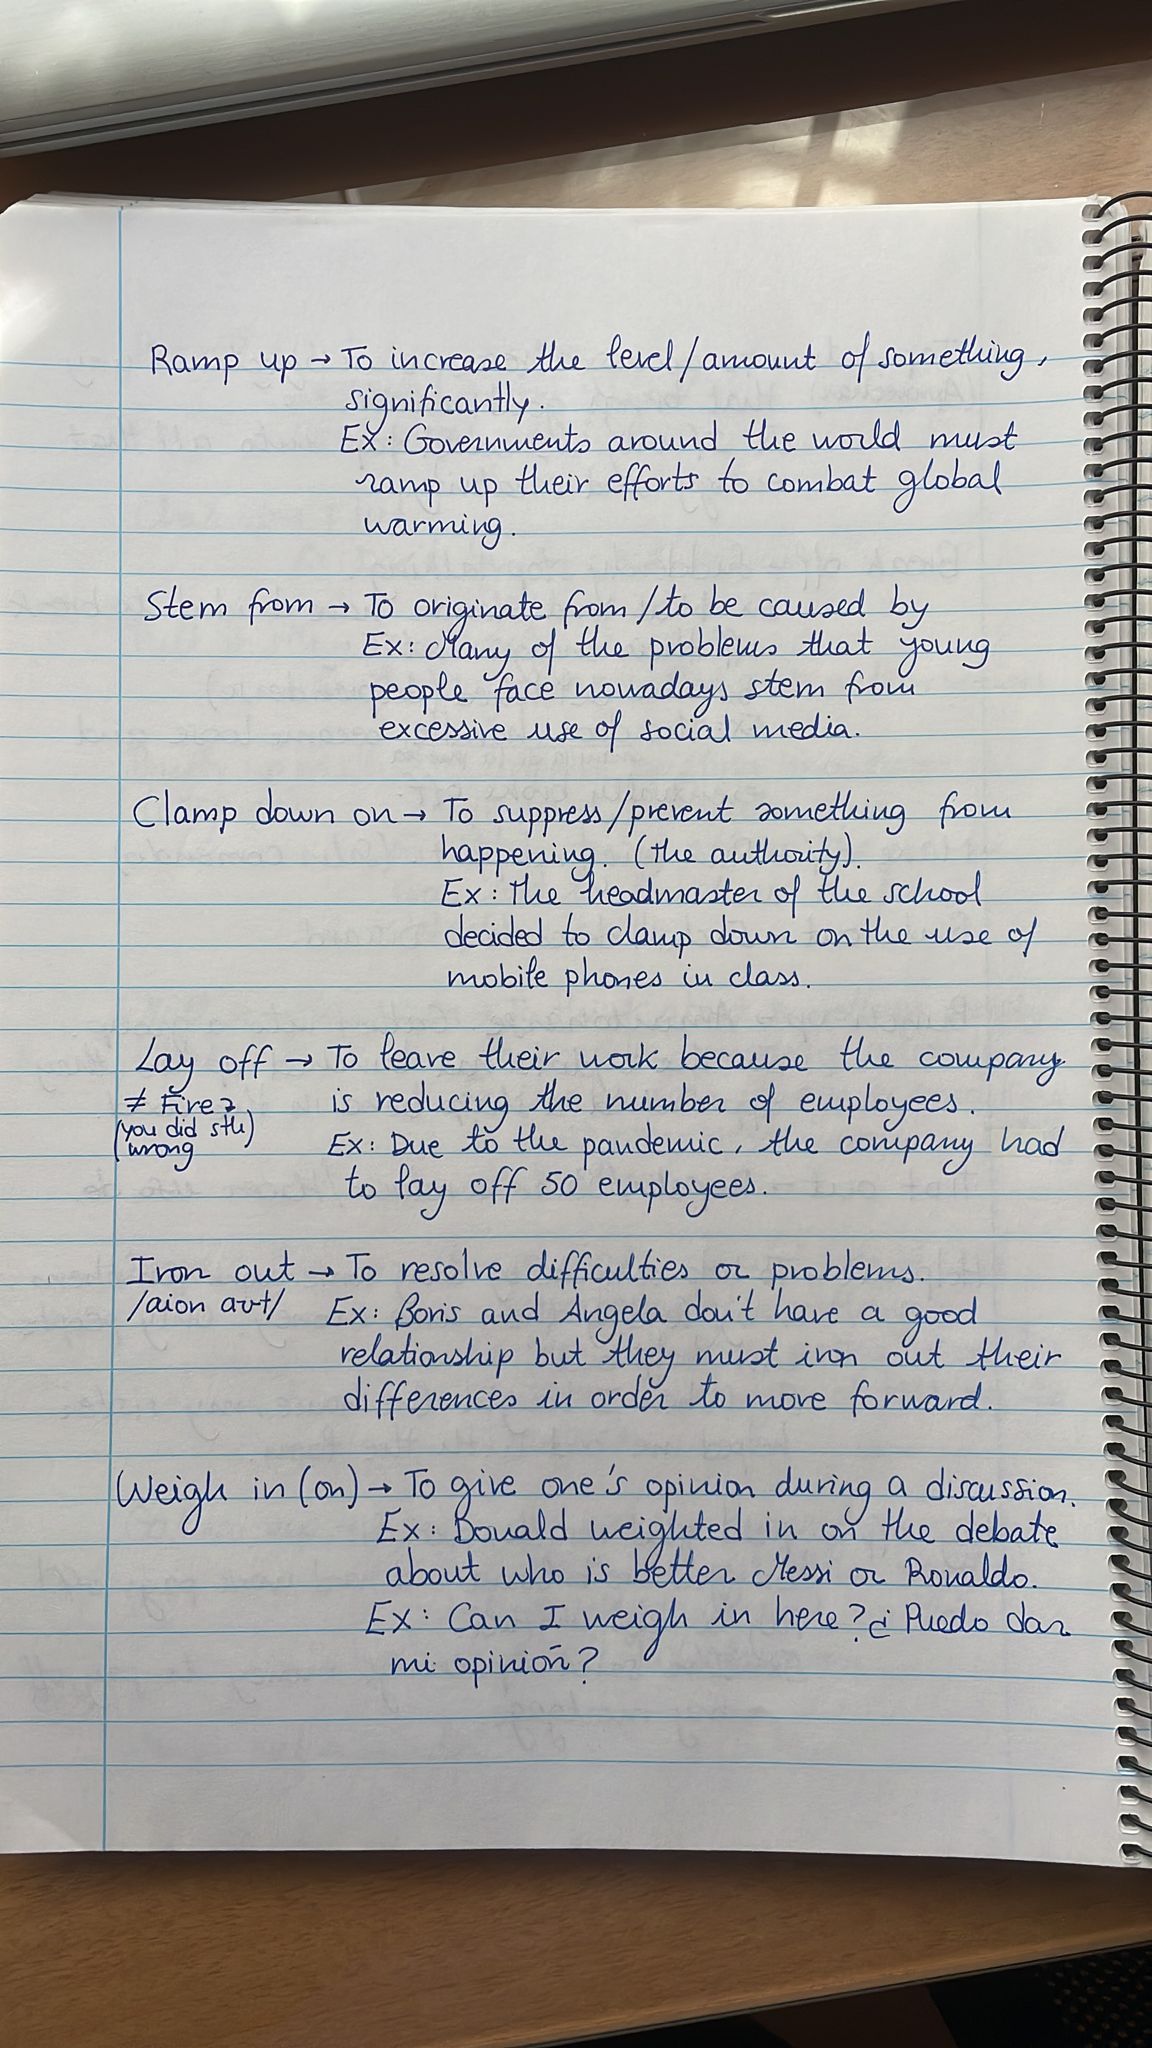 Ramp up → To increase the level/amount of something,
significantly.
Ex: Governments around the world must
ramp up their efforts to combat global
warming.
Stem from → To originate from/to be caused by
Ex: Many of the problems that young
people face nowadays stem from
excessive use of social media.
Clamp down on → To suppress/prevent something from
happening. (the authority).
Ex: The headmaster of the school
decided to clamp down on the use of
mobile phones in class.
Lay off → To leave their work because the company
≠ Fire →
is reducing the number of employees.
(you did sth)
(wrong
Ex: Due to the pandemic, the company had
to lay off 50 employees.
Iron out → To resolve difficulties or problems.
/aion aut/
Ex: Boris and Angela don't have a good
relationship but they must iron out their
differences in order to move forward.
Weigh in (on) → To give one's opinion during a discussion.
Ex: Donald weighted in on the debate
about who is better Messi or Ronaldo.
Ex: Can I weigh in here? ¿Puedo dar
mi opinión?